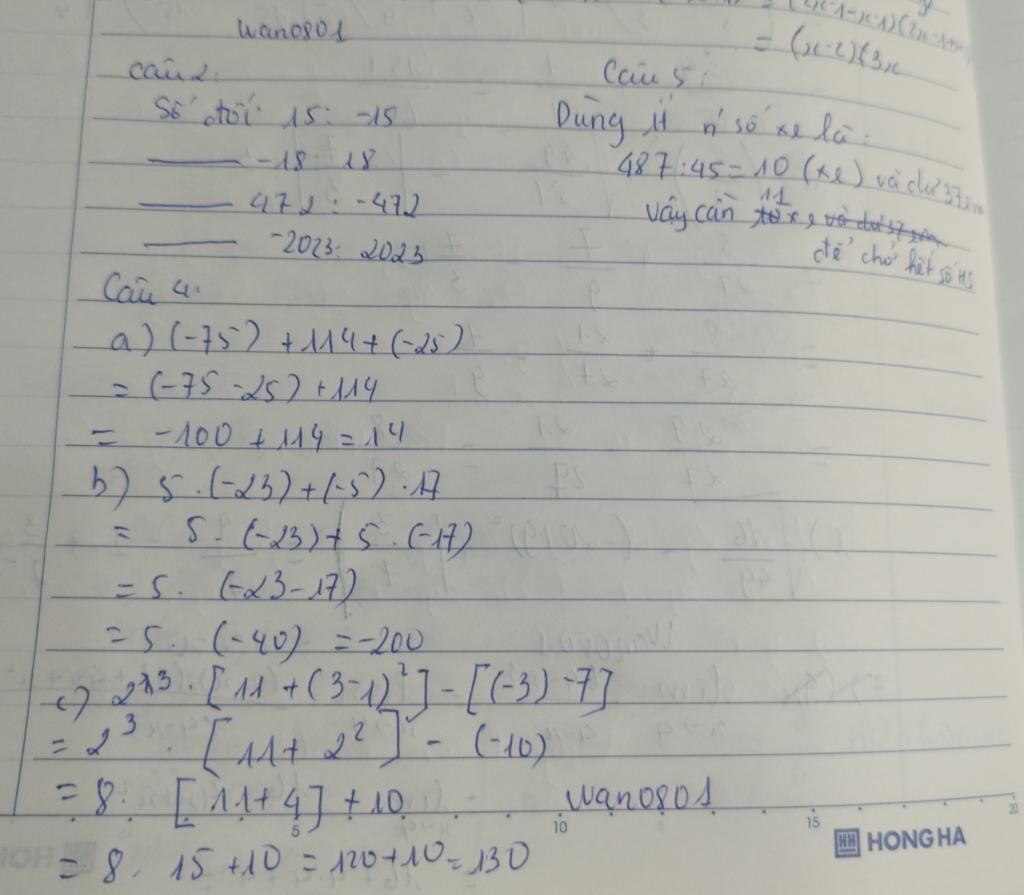 = (x-2)(3x
wano801
Câu 2.
Số đối 15: -15
-18: 18
472: -472
-2023: 2023
Câu 5:
Dùng ít n' số xe là:
487:45=10 (xe) và dư 37 em
Vậy cần 11 xe và dư 37 em
để chở hết số HS
Câu 4.
a) (-75) +114+(-25)
= (-75 -25) +114
= -100 +114 = 14
b) 5 . (-23)+(-5) . 17
= 5 . (-23)+ 5 . (-17)
= 5 . (-23-17)
= 5 . (-40) = -200
c) 2³ . [11 + (3-1)²] - [(-3) -7]
= 2³ . [11+ 2²] - (-10)
= 8 . [11+4] +10
wano801
5 10 15 20
HONG HA
= 8 . 15 +10 = 120+10=130